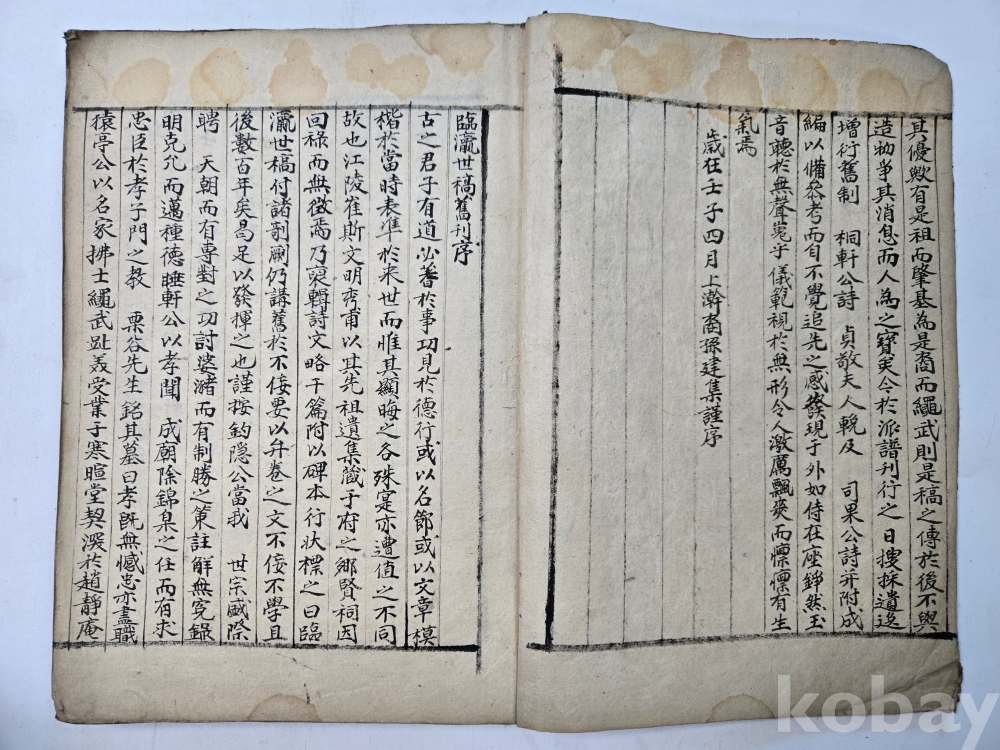 其優歟有是祖而肇基為是裔而繩武則是稿之傳於後不與
造物爭其消息而人為之寶矣今於派譜刊行之日搜採遺逸
增衍舊制 桐軒公詩 貞敬夫人輓及 司果公詩并附成
編以備叅考而自不覺追先之感發現于外如侍在座錚然玉
音聽於無聲嵬乎儀範視於無形令人激厲飄爽而懍懍有生
氣焉
歲在壬子四月上澣裔孫建集謹序
臨瀛世稿舊刊序
古之君子有道必蓄於事功見於德行或以名節或以文章模
楷於當時表準於来世而惟其顯晦之各殊寔亦遭值之不同
故也江陵崔斯文明 甫以其先祖遺集藏于府之鄉賢祠因
回禄而無徵焉乃裒輯詩文略干篇附以碑本行状標之曰臨
瀛世稿付諸剞劂仍講舊於不佞要以弁卷之文不佞不學且
後數百年矣曷足以發揮之也謹按釣隱公當我 世宗盛際
聘 天朝而有專對之功討婆瀦而有制勝之策註解無冤錄
明克允而邁種德睡軒公以孝聞 成廟除錦臬之任而有求
忠臣於孝子門之教 栗谷先生銘其墓曰孝旣無憾忠亦盡職
猿亭公以名家拂士繩武趾義受業于寒暄堂契深於趙靜庵
kobay